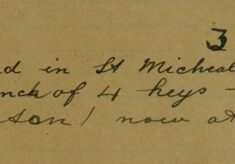 3
d in St Micheal
nch of 4 keys -
son / now at